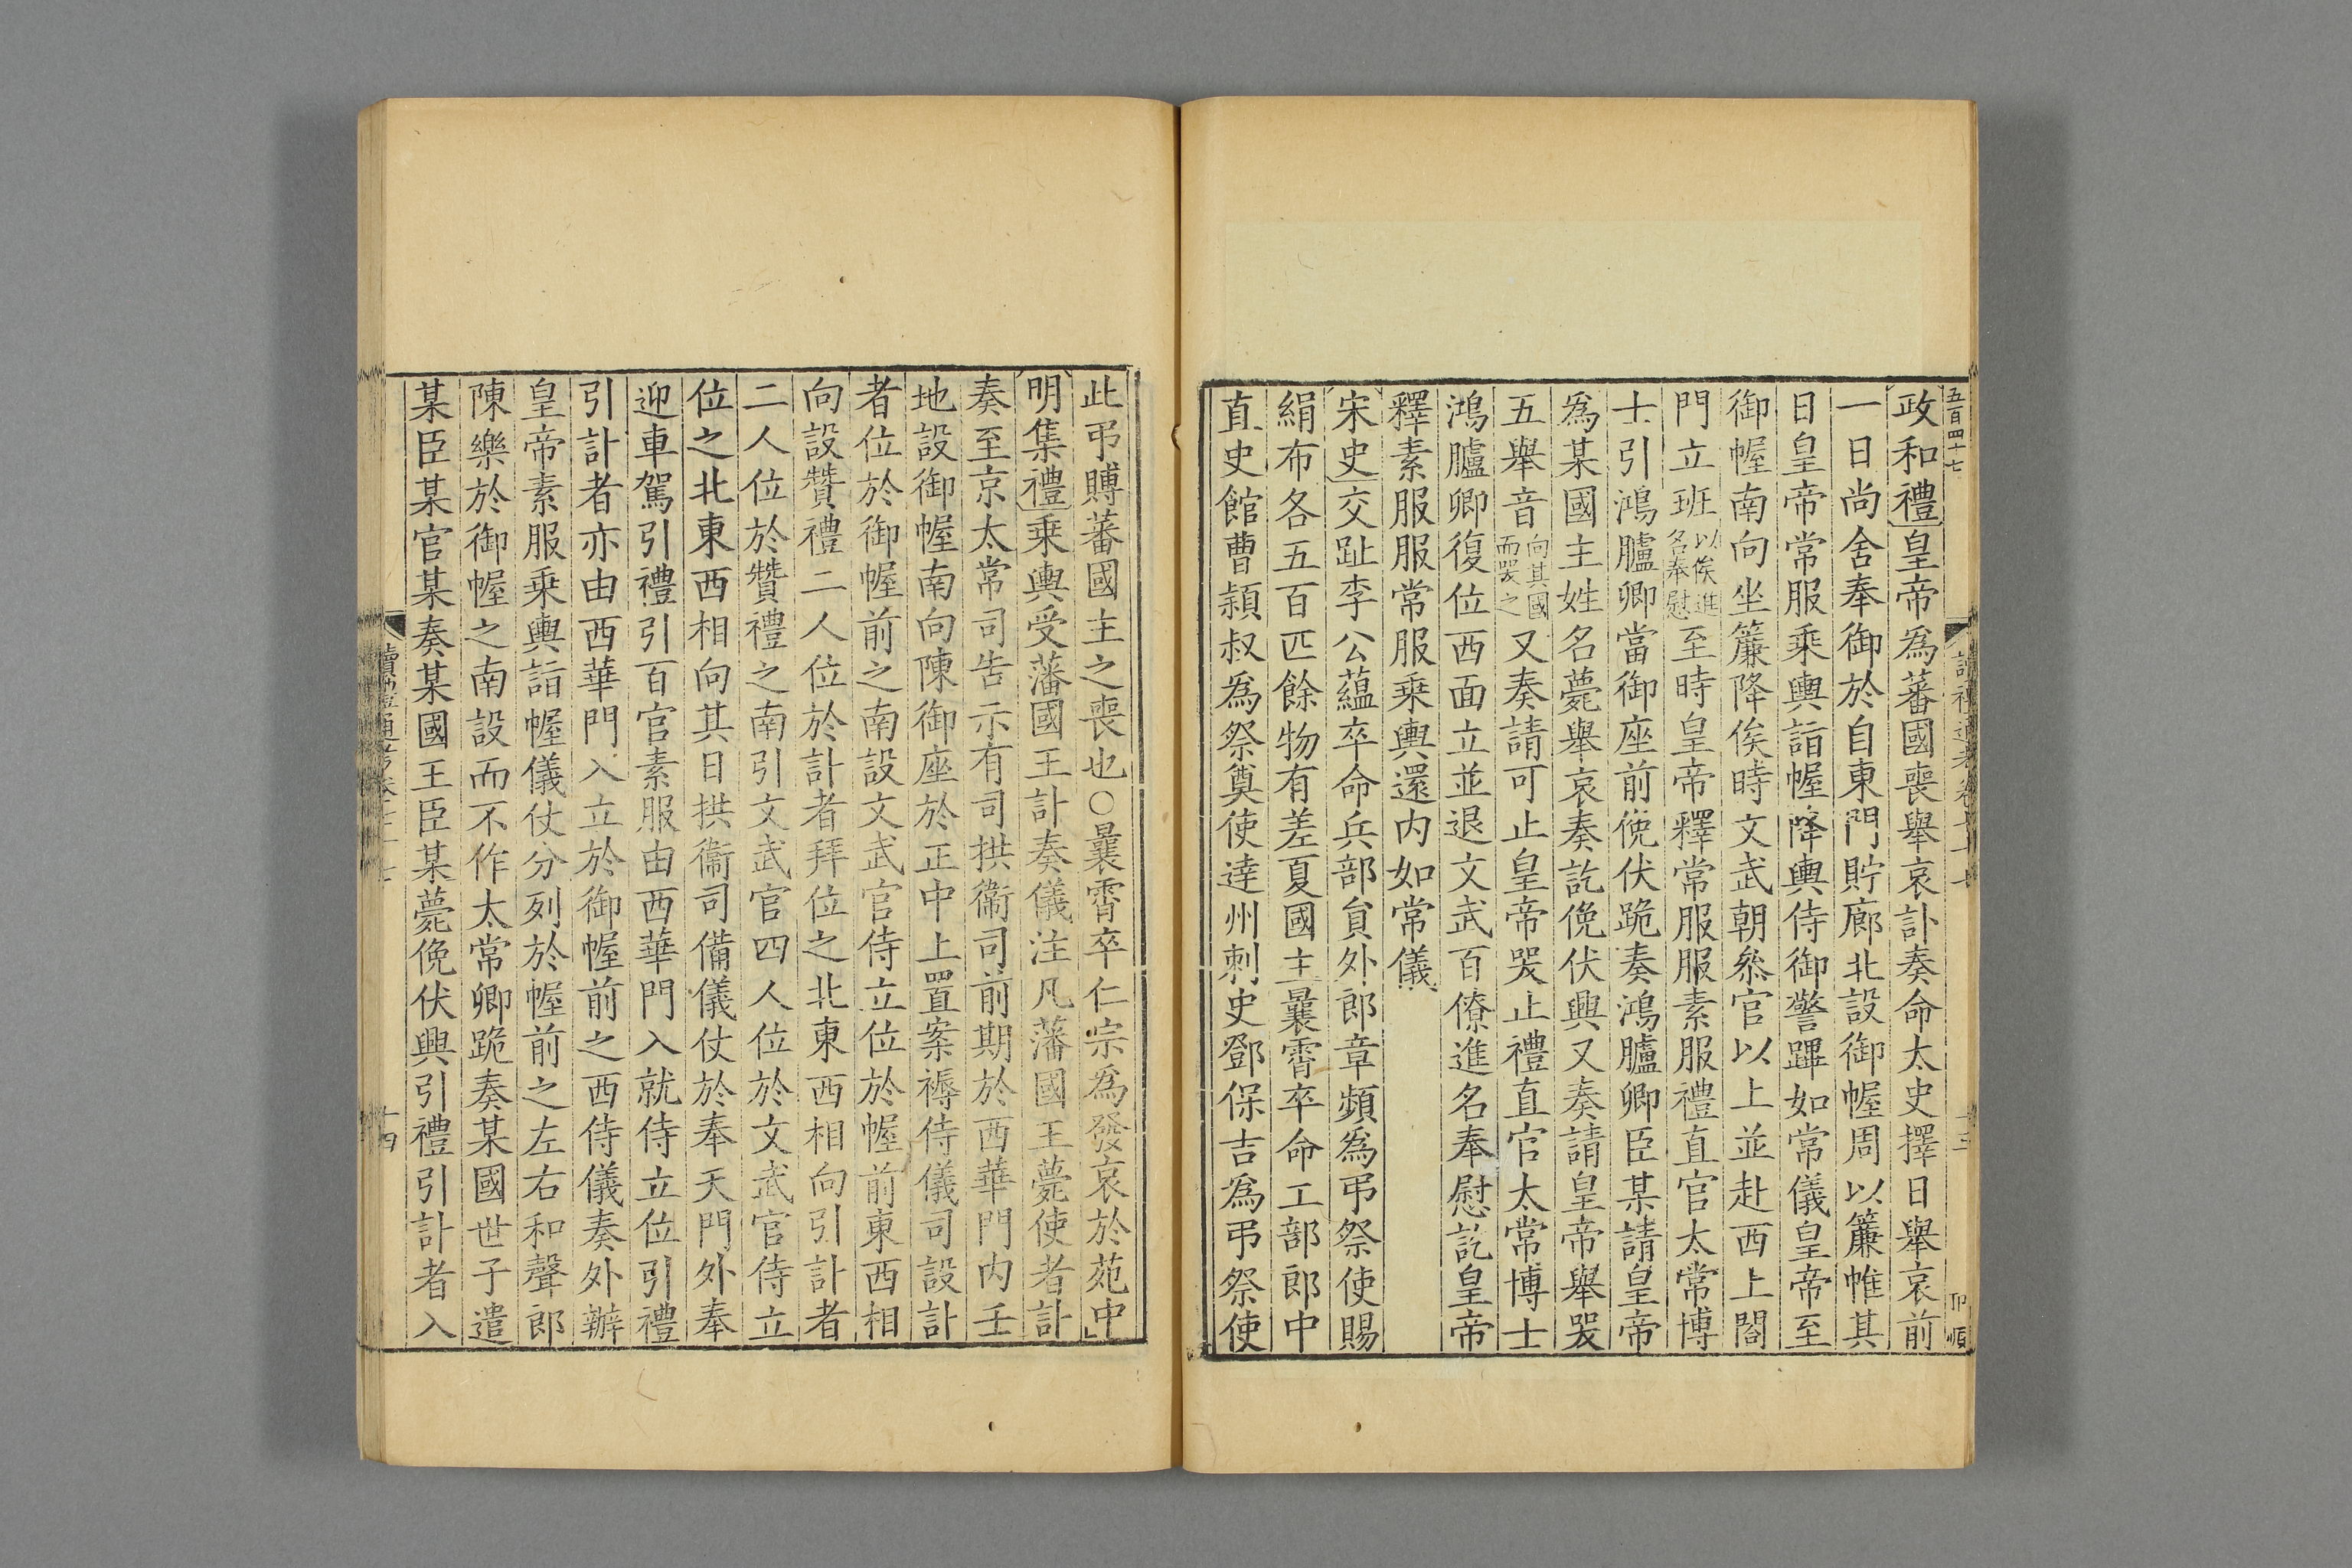 五百四十七
政和禮皇帝為蕃國喪舉哀訃奏命太史擇日舉哀前
一日尚舍奉御於自東門貯廊北設御幄周以簾帷其
日皇帝常服乘輿詣幄降輿侍御警蹕如常儀皇帝至
御幄南向坐簾降俟時文武朝叅官以上並赴西上閤
門立班以俟進名奉慰至時皇帝釋常服服素服禮直官太常博
士引鴻臚卿當御座前俛伏跪奏鴻臚卿臣某請皇帝
為某國主姓名薨舉哀奏訖俛伏興又奏請皇帝舉哭
五舉音向其國而哭之又奏請可止皇帝哭止禮直官太常博士
鴻臚卿復位西面立並退文武百僚進名奉慰訖皇帝
釋素服服常服乘輿還内如常儀
宋史交趾李公蘊卒命兵部貟外郎章頻為弔祭使賜
絹布各五百匹餘物有差夏國主曩霄卒命工部郎中
直史館曹穎叔為祭奠使達州刺史鄧保吉為弔祭使
此弔賻蕃國主之喪也○曩霄卒仁宗為發哀於苑中
明集禮乘輿受藩國王訃奏儀注凡藩國王薨使者訃
奏至京太常司告示有司拱衞司前期於西華門内壬
地設御幄南向陳御座於正中上置案褥侍儀司設訃
者位於御幄前之南設文武官侍立位於幄前東西相
向設贊禮二人位於訃者拜位之北東西相向引訃者
二人位於贊禮之南引文武官四人位於文武官侍立
位之北東西相向其日拱衞司備儀仗於奉天門外奉
迎車駕引禮引百官素服由西華門入就侍立位引禮
引訃者亦由西華門入立於御幄前之西侍儀奏外辦
皇帝素服乘輿詣幄儀仗分列於幄前之左右和聲郎
陳樂於御幄之南設而不作太常卿跪奏某國世子遣
某臣某官某奏某國王臣某薨俛伏興引禮引訃者入
讀禮通考卷
十四